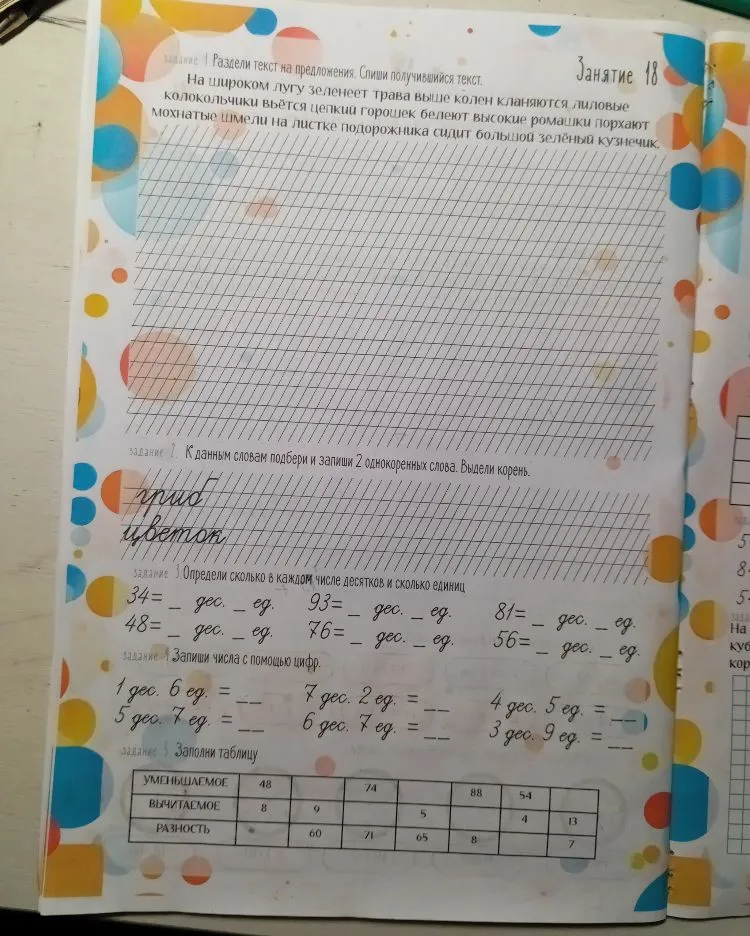 Занятие 18
задание 1 Раздели текст на предложения. Спиши получившийся текст.
На широком лугу зеленеет трава выше колен кланяются лиловые
колокольчики вьётся цепкий горошек белеют высокие ромашки порхают
мохнатые шмели на листке подорожника сидит большой зелёный кузнечик.
задание 2. К данным словам подбери и запиши 2 однокоренных слова. Выдели корень.
гриб
цветок
задание 3 Определи сколько в каждом числе десятков и сколько единиц
34= _ дес. _ ед. 93= _ дес. _ ед. 81= _ дес. _ ед.
48= _ дес. _ ед. 76= _ дес. _ ед. 56= _ дес. _ ед.
задание 4 Запиши числа с помощью цифр.
1 дес. 6 ед. = __ 7 дес. 2 ед. = __ 4 дес. 5 ед. = __
5 дес. 7 ед. = __ 6 дес. 7 ед. = __ 3 дес. 9 ед. = __
задание 5 Заполни таблицу
УМЕНЬШАЕМОЕ 48 74 88 54
ВЫЧИТАЕМОЕ 8 9 5 4 13
РАЗНОСТЬ 60 71 65 8 7
5
8
5
На
куб
кор